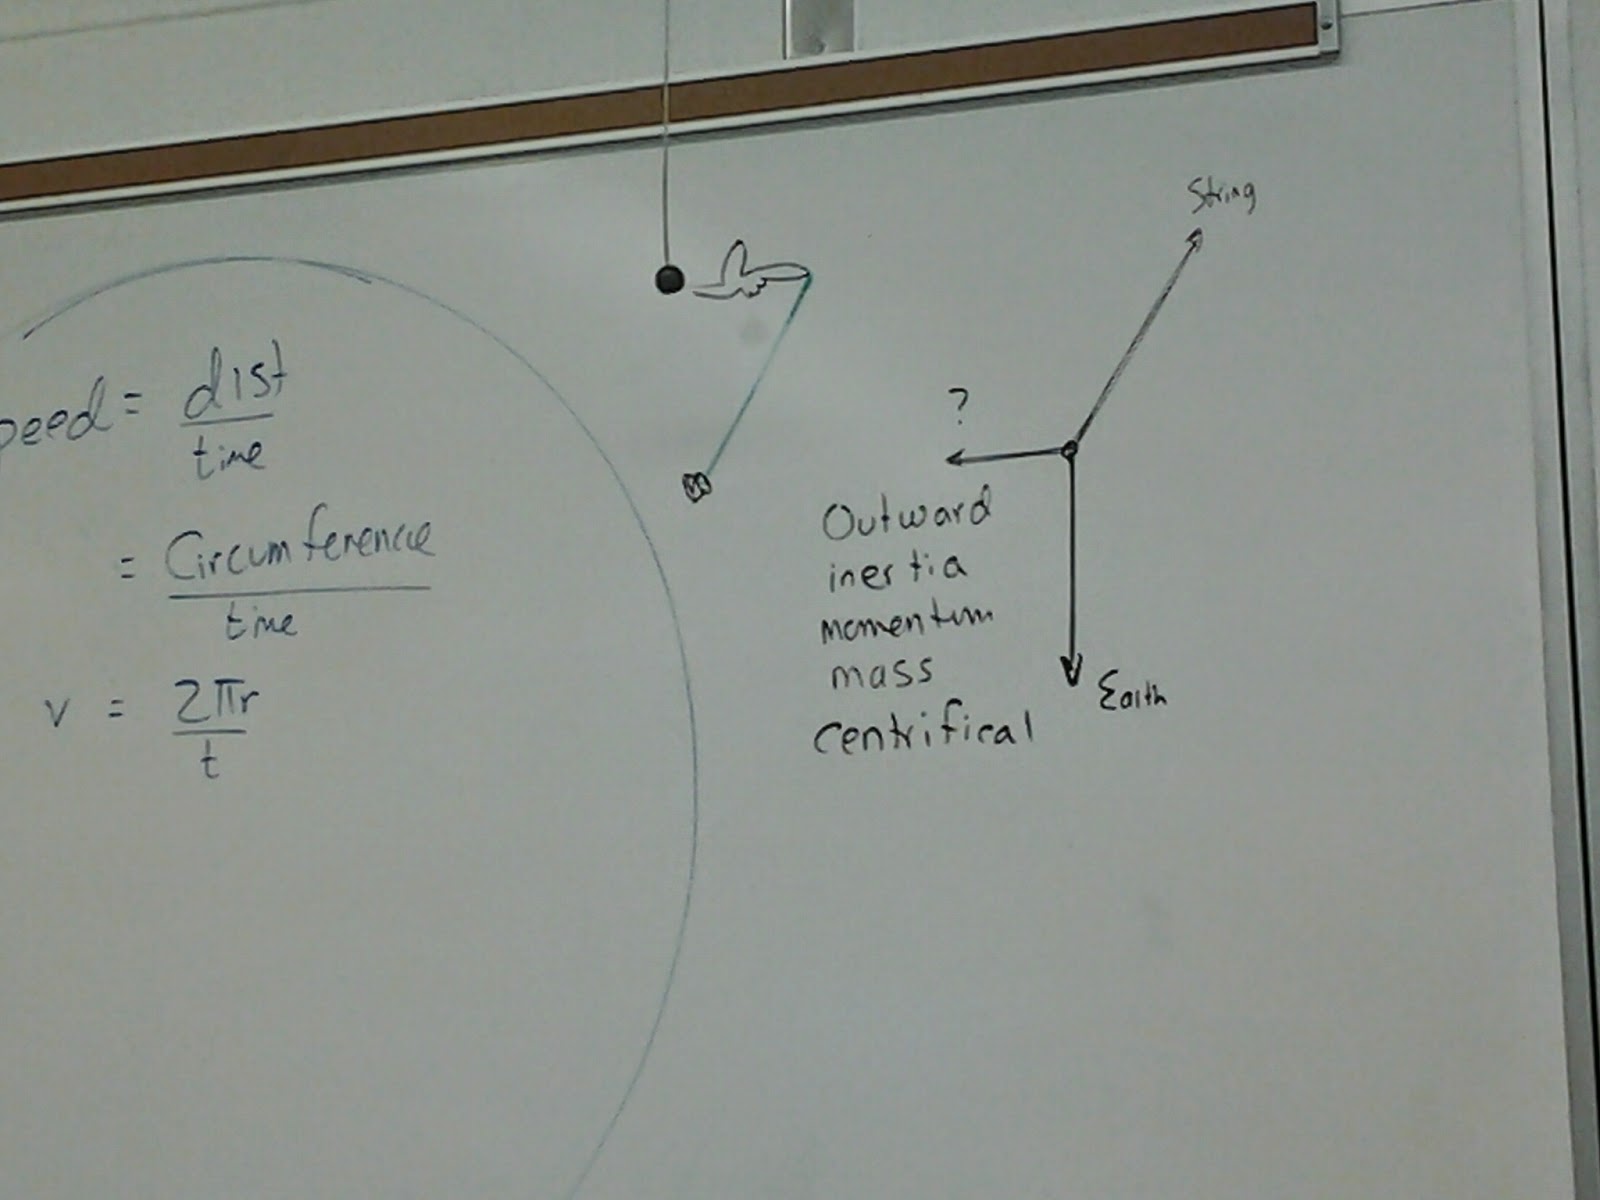 peed = dist
time
= Circumference
time
v = 2πr
t
String
?
Outward
inertia
momentum
mass
centrifical
Earth